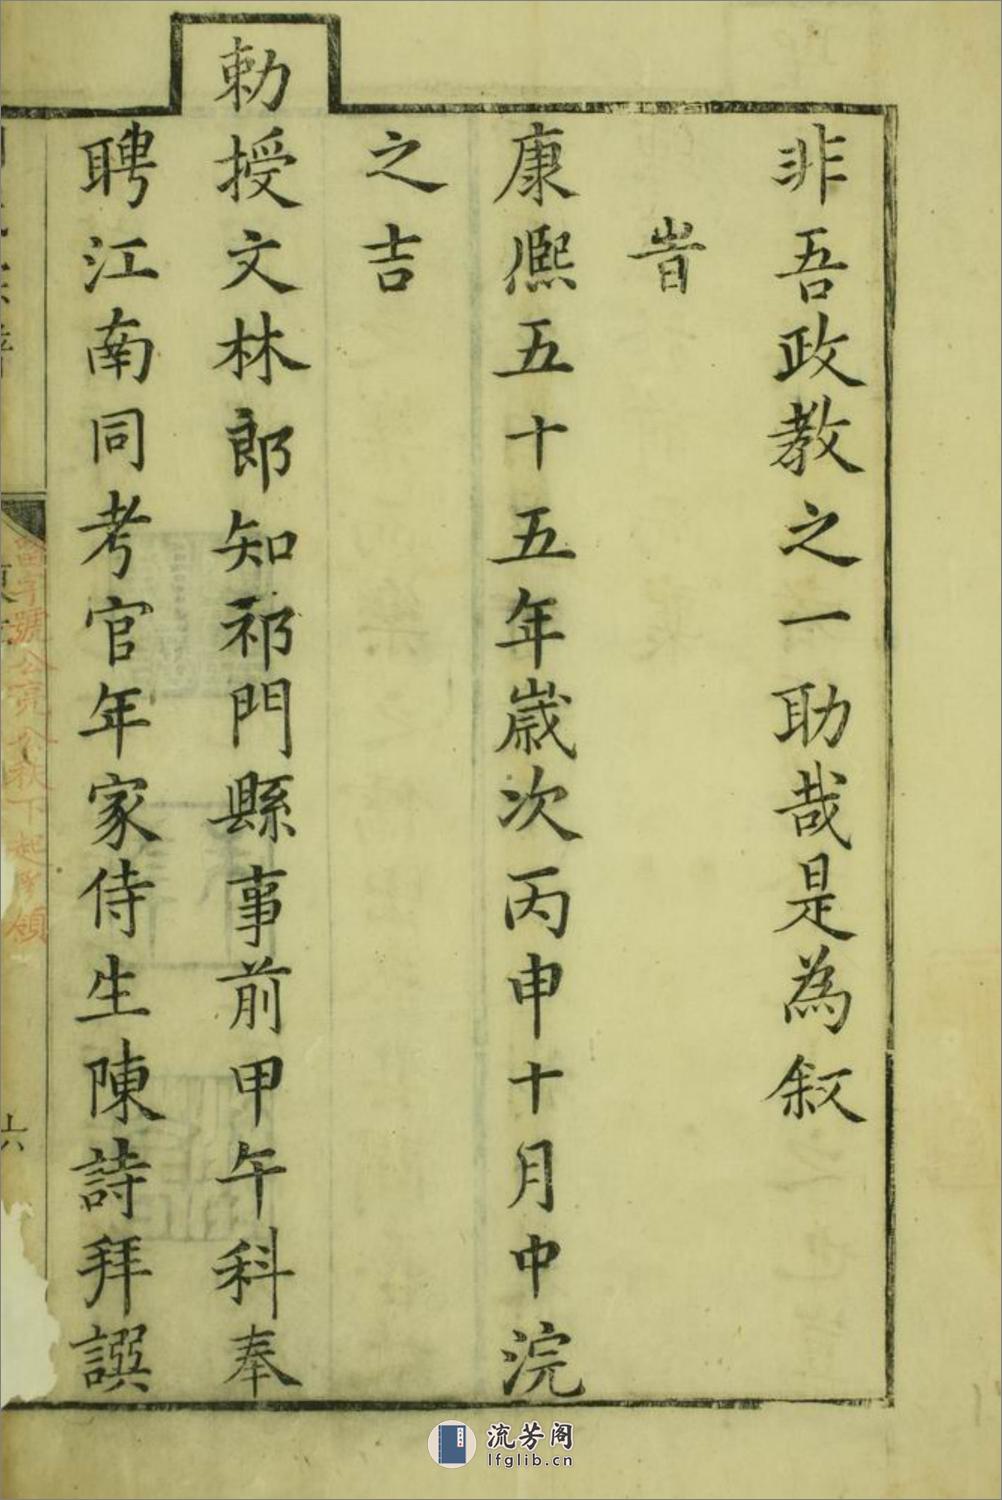 非吾政教之一助哉是為叙
旹
康熈五十五年歲次丙申十月中浣
之吉
勅授文林郎知祁門縣事前甲午科奉
聘江南同考官年家侍生陳詩拜譔
六
流芳阁
lfglib.cn